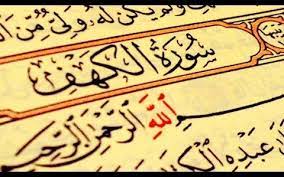 يكن لَّهُۥ وَلِىٌّ مِّنَ
سُورَةُ الكَهْفِ
بِسْمِ اللَّهِ الرَّحْمَٰنِ الرَّحِيمِ
عَبْدِهِ